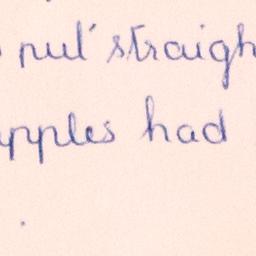 put straigh
apples had